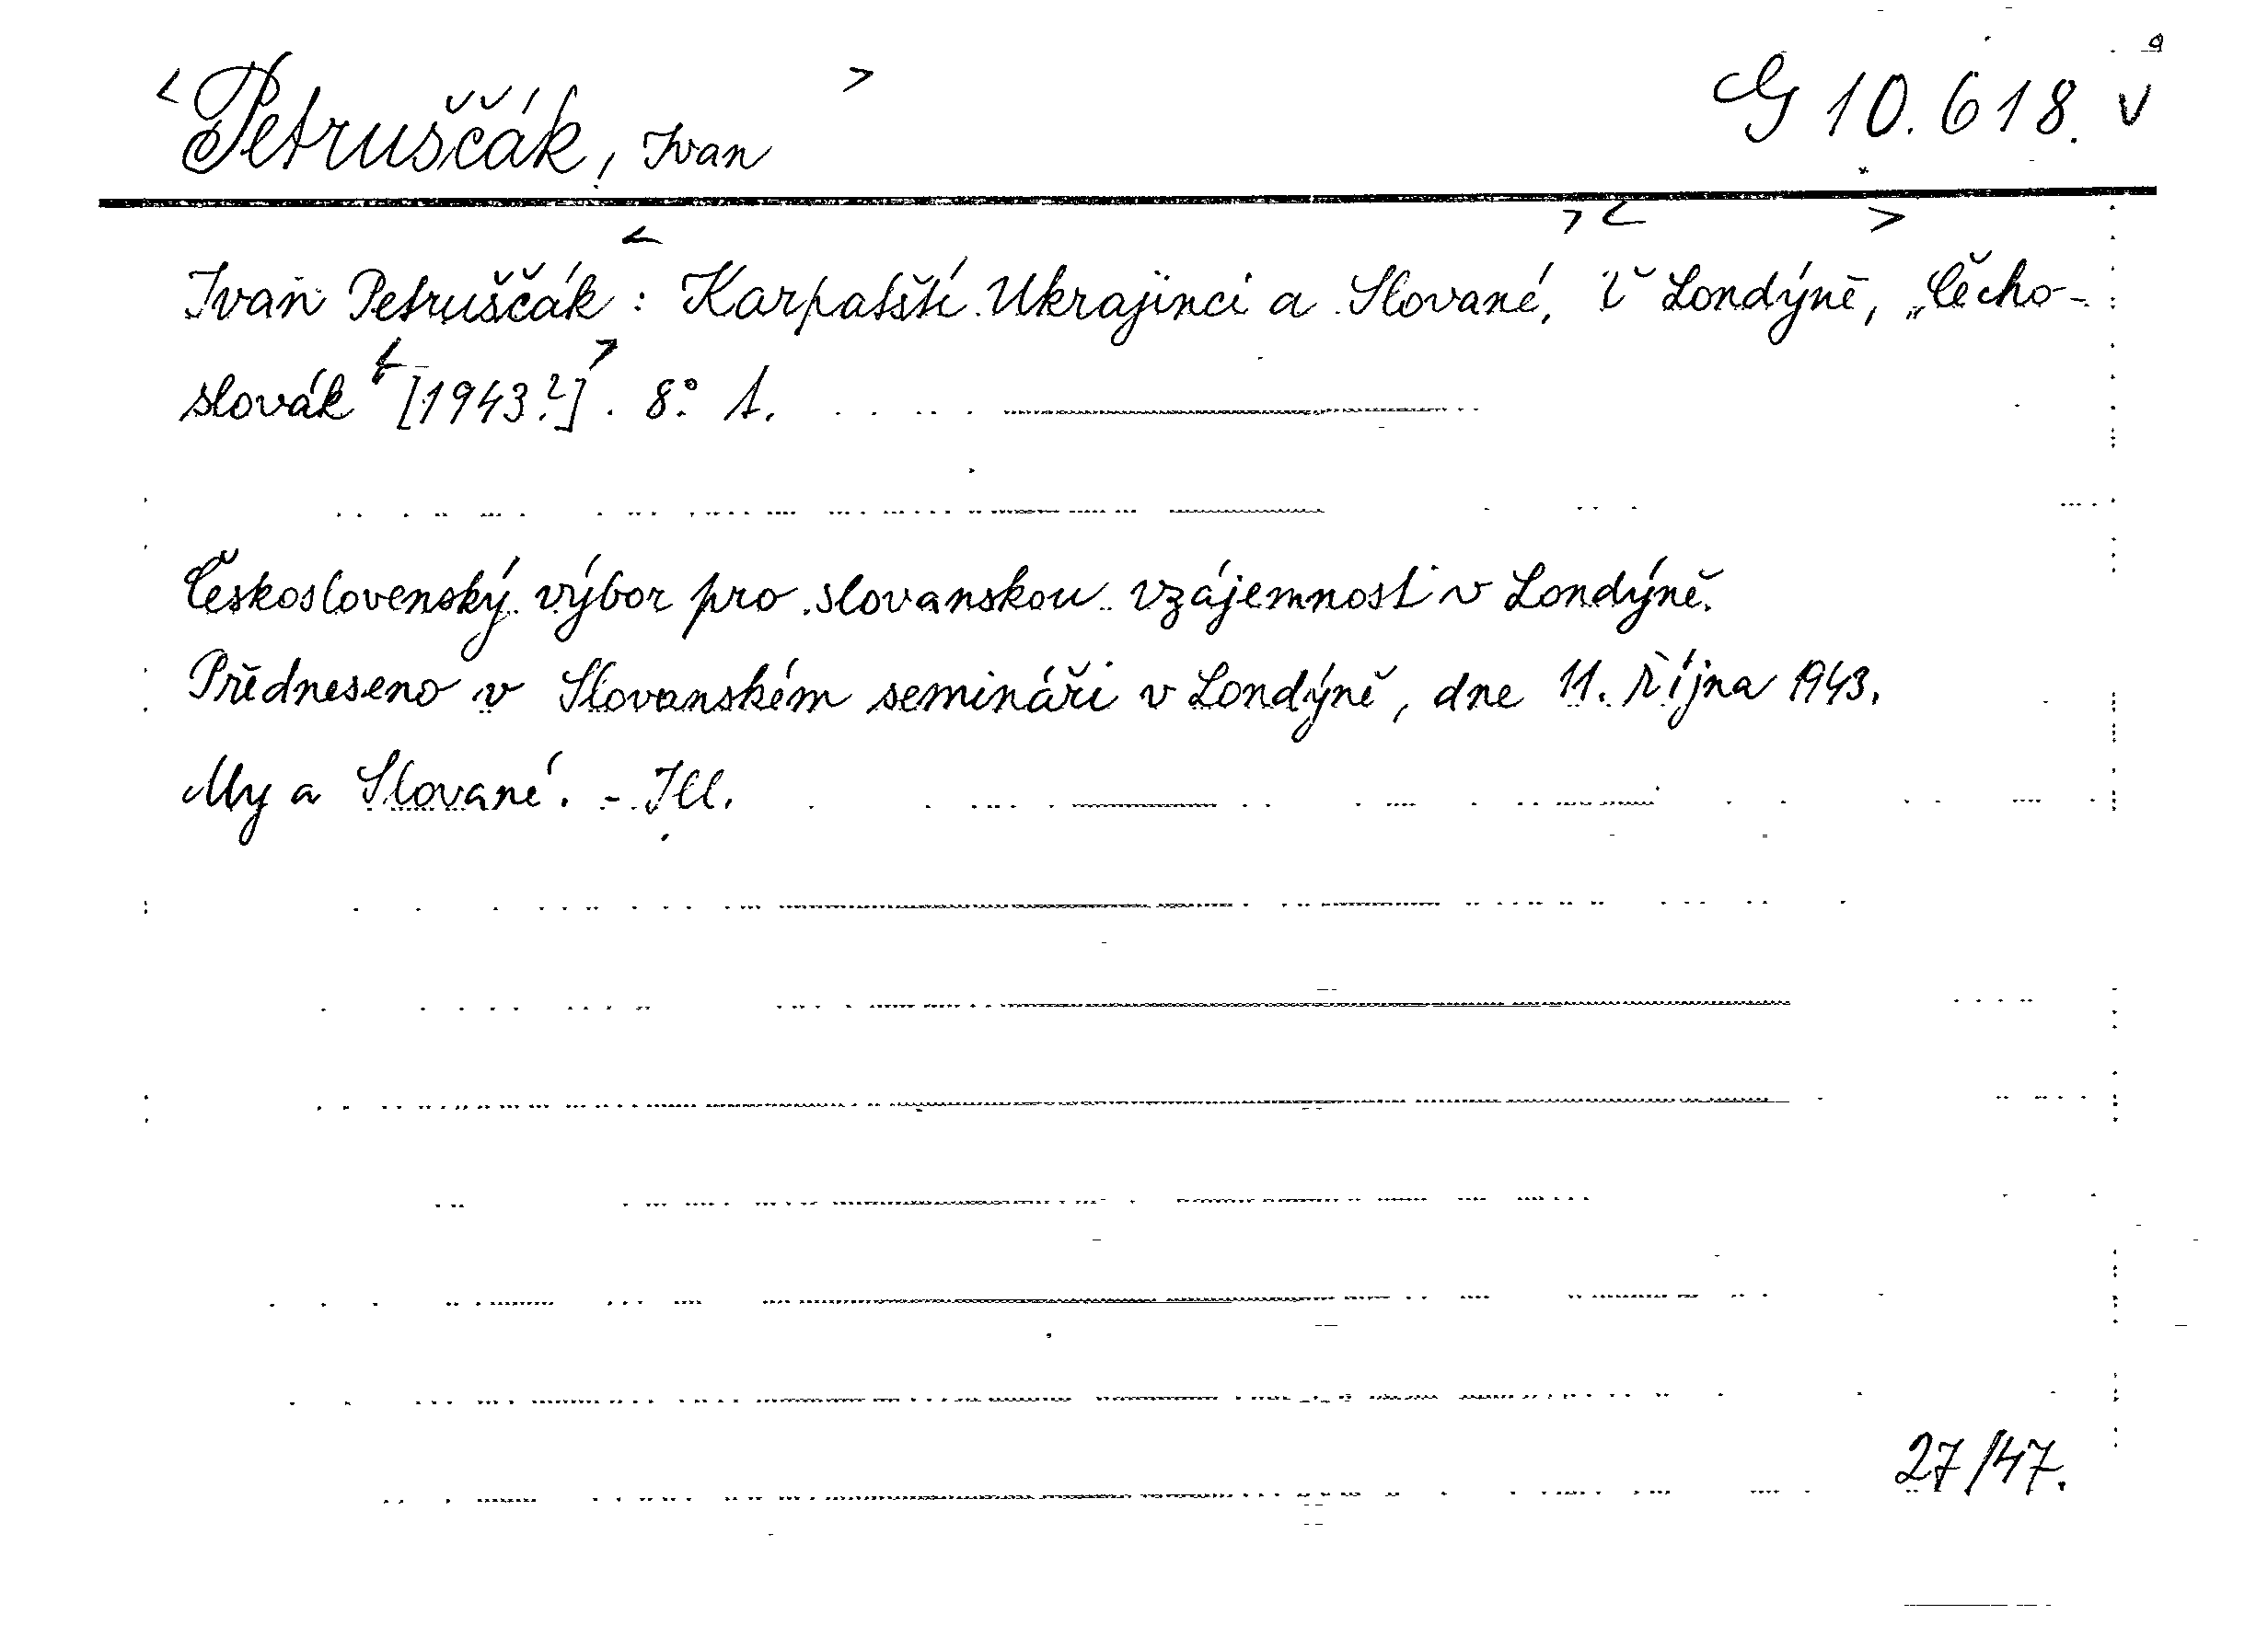 <Petruščák, Ivan> G 10.618. v
Ivan Petruščák: <Karpatští Ukrajinci a Slované,> <V Londýně,> „Čecho-
slovák“ <[1943?]>. 8°. 1.
Československý výbor pro slovanskou vzájemnost v Londýně.
Předneseno v Slovanském semináři v Londýně, dne 11. října 1943.
My a Slované. - Ill.
27/47.